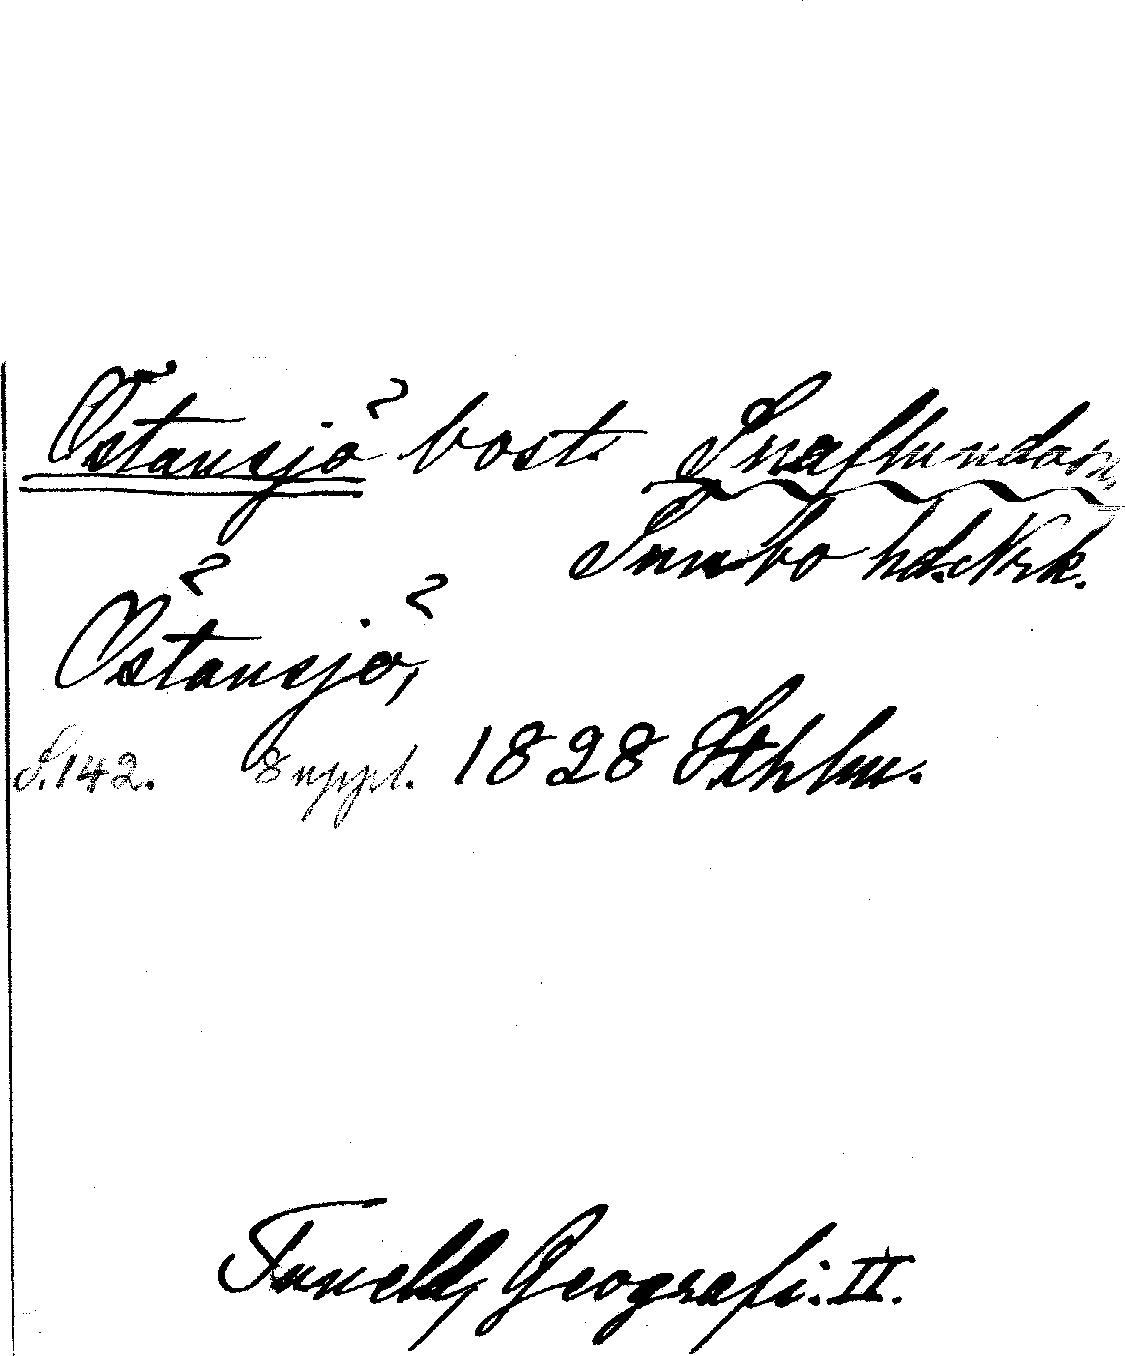 Östansjö bost. Snaflunda sn,
Sumbo hd. Nrk.
Östansjö,
S. 142. Suppl. 1828 Sthlm.
Tuneld, Geografi. II.